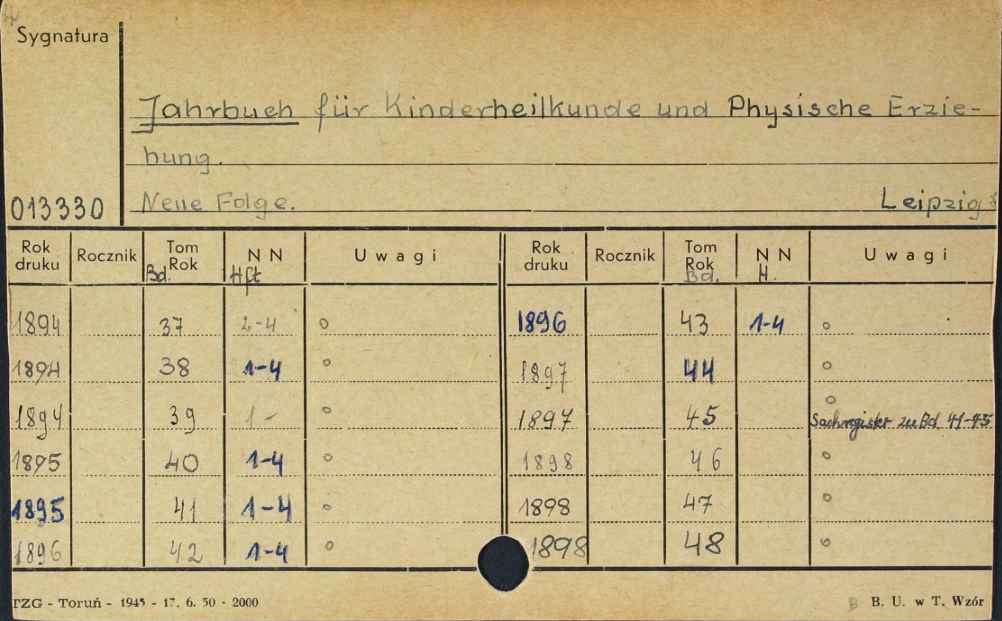 Sygnatura
Jahrbuch für Kinderheilkunde und Physische Erzie-
hung.
013330 Neue Folge. Leipzig
Rok druku Rocznik Tom Rok Bd. NN Hft Uwagi Rok druku Rocznik Tom Rok Bd. NN H. Uwagi
1894 37 2-4 o 1896 43 1-4 o
1894 38 1-4 o 1897 44 o
1894 39 1- o 1897 45 o Sachregister zu Bd 41-45
1895 40 1-4 o 1898 46 o
1895 41 1-4 o 1898 47 o
1896 42 1-4 o 1898 48 o
TZG - Toruń - 1945 - 17. 6. 50 - 2000 B B. U. w T. Wzór